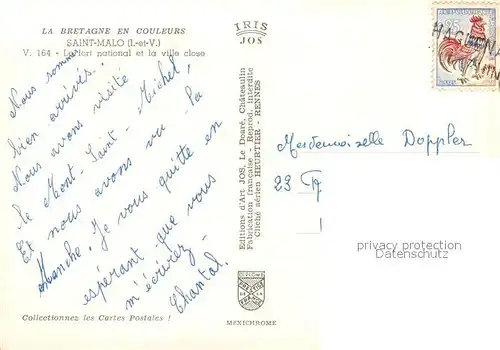 LA BRETAGNE EN COULEURS
SAINT-MALO (I.-et-V.)
V. 164 - Le fort national et la ville close
Nous sommes
bien arrivés.
Nous avons visité
le Mont-Saint-Michel,
Et nous avons vu la
Manche. Je vous quitte en
espérant que vous
m'écrirez.
Chantal.
Collectionnez les Cartes Postales !
IRIS
JOS
Editions d'Art JOS, Le Doaré, Châteaulin
Fabrication française - Reprod. interdite
Cliché aérien HEURTIER - RENNES
DIPLOME
PRESTIGE
DE LA
FRANCE
MEXICHROME
Mesdemoiselle Doppler
23
privacy protection
Datenschutz